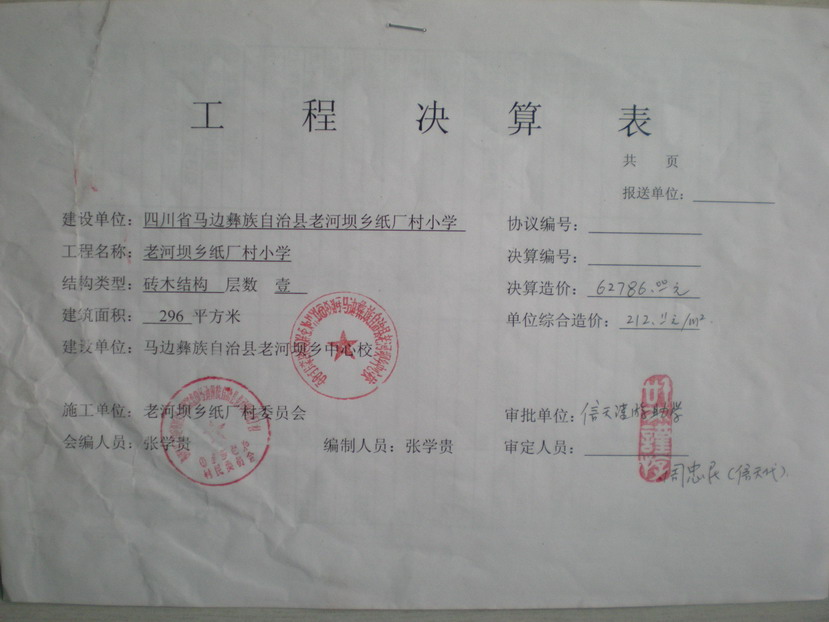 工 程 决 算 表
共 页
报送单位：
建设单位：四川省马边彝族自治县老河坝乡纸厂村小学 协议编号：
工程名称：老河坝乡纸厂村小学 决算编号：
结构类型：砖木结构 层数 壹 决算造价：62786.00元
建筑面积：296 平方米 单位综合造价：212.11元/m²
建设单位：马边彝族自治县老河坝乡中心校
施工单位：老河坝乡纸厂村委员会 审批单位：信天
会编人员：张学贵 编制人员：张学贵 审定人员：
周忠民（信天代）